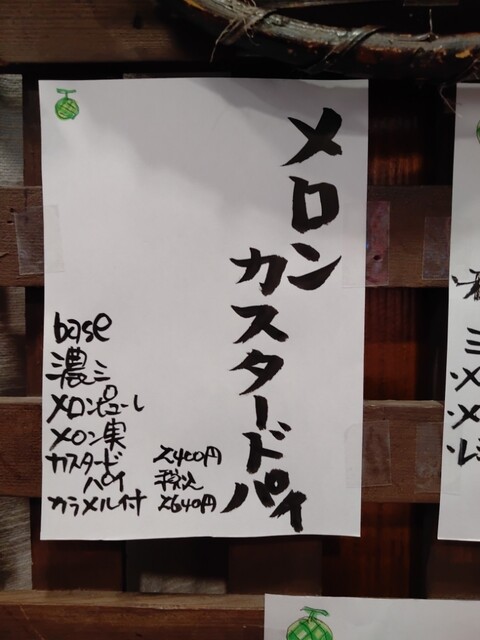 メロン
カスタード
パイ
base
濃ミ
メロンピューレ
メロン実
カスタード
パイ
カラメル付
2400円
税込
2640円